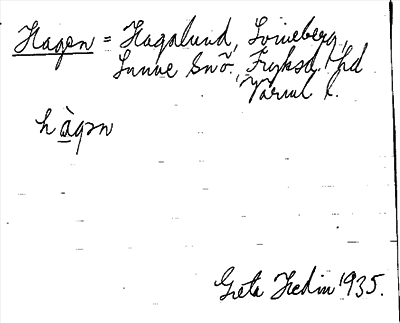 Hagen = Hagalund, Svineberg,
Sunne Snõ. Fryksd. hd
Värml l.
hàgən
Greta Hedin 1935.